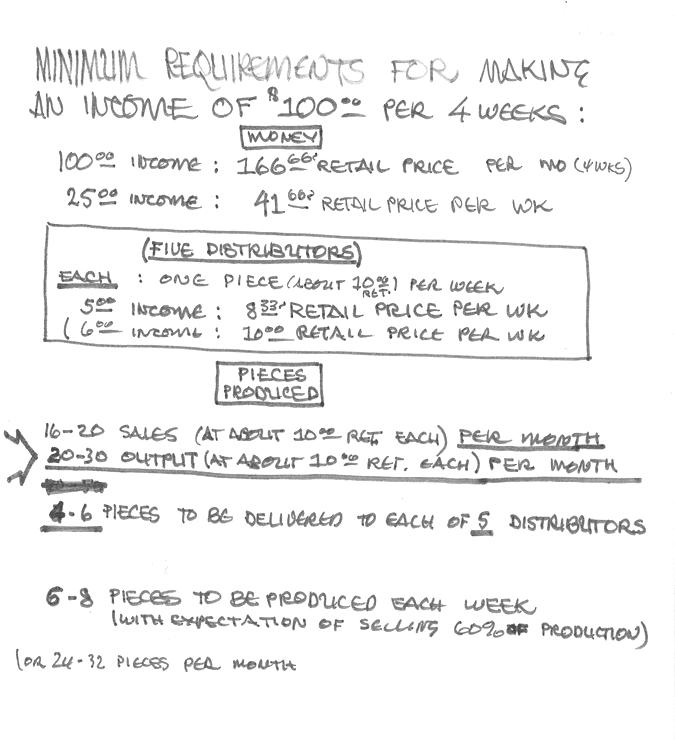 MINIMUM REQUIREMENTS FOR MAKING
AN INCOME OF $100.00 PER 4 WEEKS :
MONEY
100.00 INCOME : 166.66 RETAIL PRICE PER MO (4 WKS)
25.00 INCOME : 41.66 RETAIL PRICE PER WK
(FIVE DISTRIBUTORS)
EACH : ONE PIECE (ABOUT 10.00 RET.) PER WEEK
5.00 INCOME : 8.33 RETAIL PRICE PER WK
(6.00 INCOME : 10.00 RETAIL PRICE PER WK
PIECES
PRODUCED
16-20 SALES (AT ABOUT 10.00 RET. EACH) PER MONTH
20-30 OUTPUT (AT ABOUT 10.00 RET. EACH) PER MONTH
4-6 PIECES TO BE DELIVERED TO EACH OF 5 DISTRIBUTORS
6-8 PIECES TO BE PRODUCED EACH WEEK
(WITH EXPECTATION OF SELLING 60% OF PRODUCTION)
(OR 24-32 PIECES PER MONTH